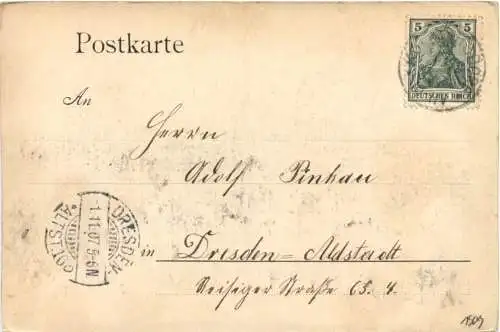 Postkarte
5 5
DEUTSCHES REICH
An
Herrn
Adolf Pinkau
in Dresden=Altstadt
Straße 65. 4.
DRESDEN-
ALTST.
-1.11.07 5-6N